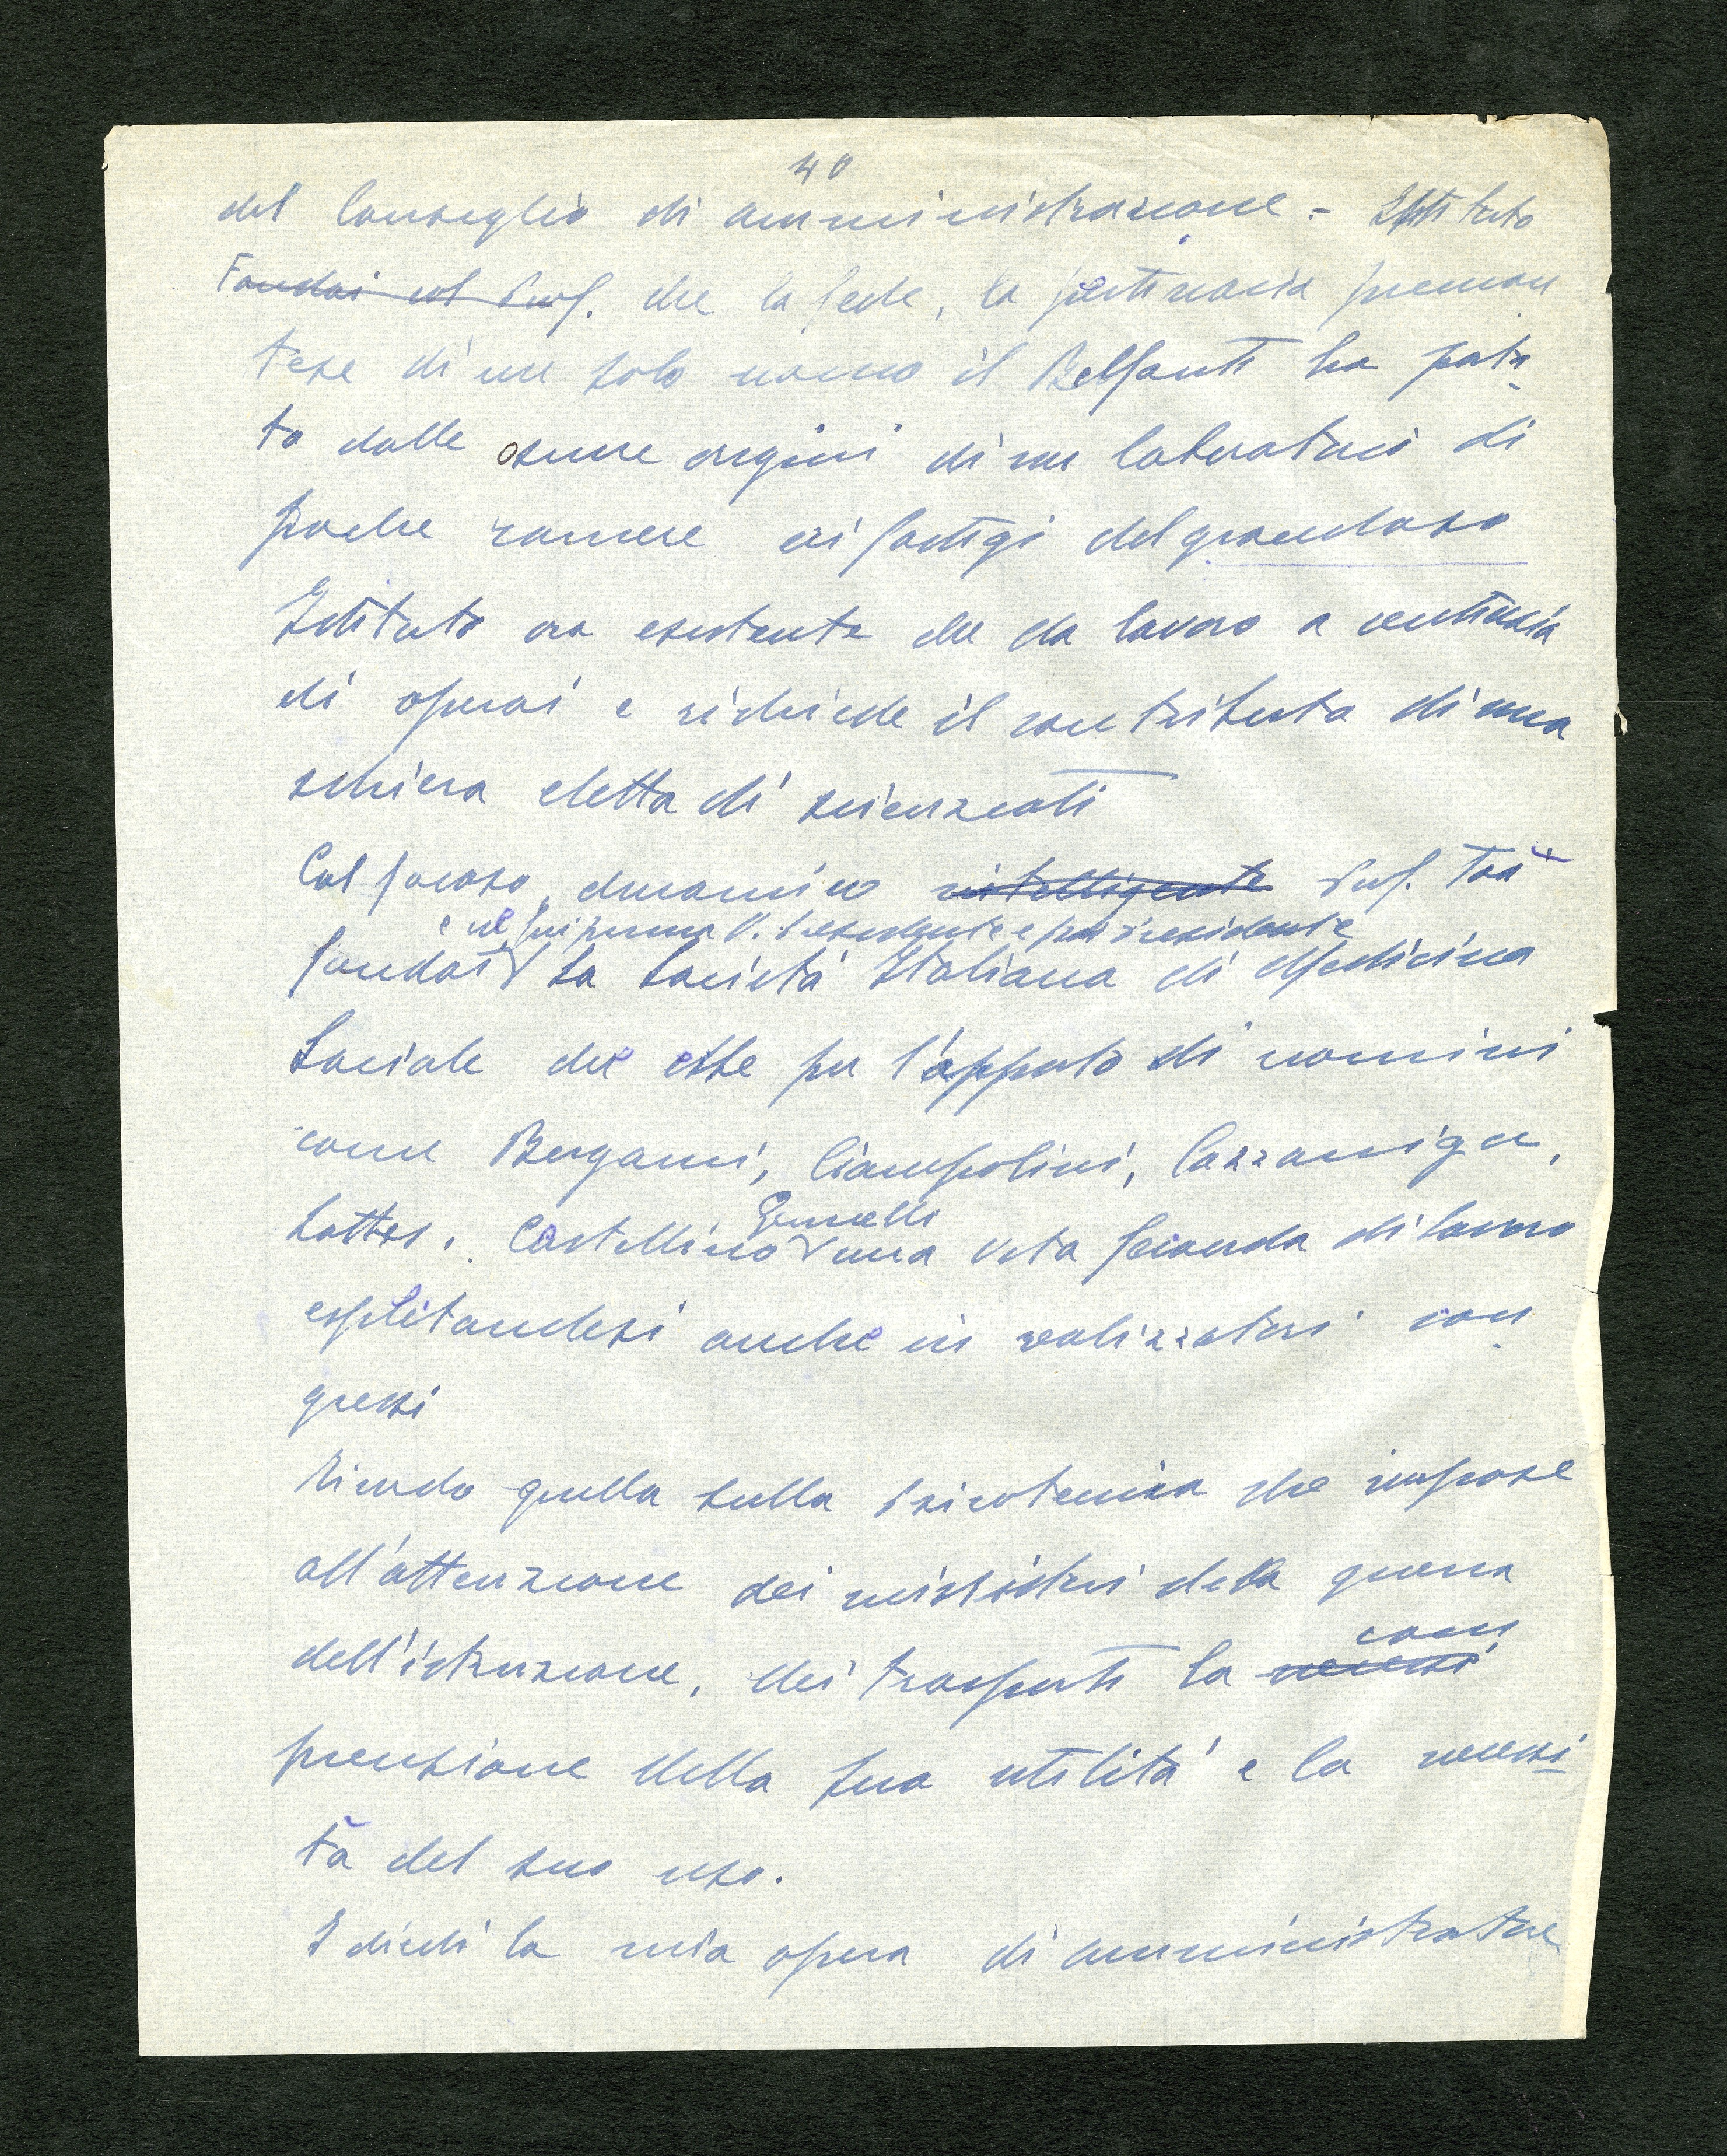 40
del Consiglio di amministrazione - Istituto
Fondai col Prof. che la fede, la pertinacia preman
tese di un solo uomo il Belfanti ha porta
to dalle oscure origini di un laboratorio di
poche camere ai fastigi del grandioso
Istituto ora esistente che da lavoro a centinaia
di operai e richiede il contributo di una
schiera eletta di scienziati
Col focoso, dinamico intelligente Prof.
e ne fui prima V. Presidente e poi presidente
fondai la Società Italiana di Medicina
Sociale che ebbe per l'apporto di uomini
come Bergami, Ciampolini, Cazzaniga,
Lattes, Castellino una vita feconda di lavoro
Gemelli
esplitandosi anche in realizzatori con
gressi
Ricordo quello sulla Psicotecnica che impose
all'attenzione dei ministeri della guerra
dell'istruzione, dei trasporti la necessi
com
prensione della sua utilità e la necessi
tà del suo uso.
I diedi la mia opera di amministratore